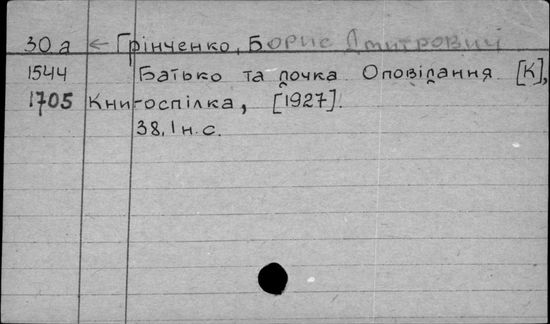 30 а ← Грінченко, Борис Дмитрович
1544 Батько та дочка Оповідання [К],
1705 Книгоспілка, [1927].
38, 1 н. с.